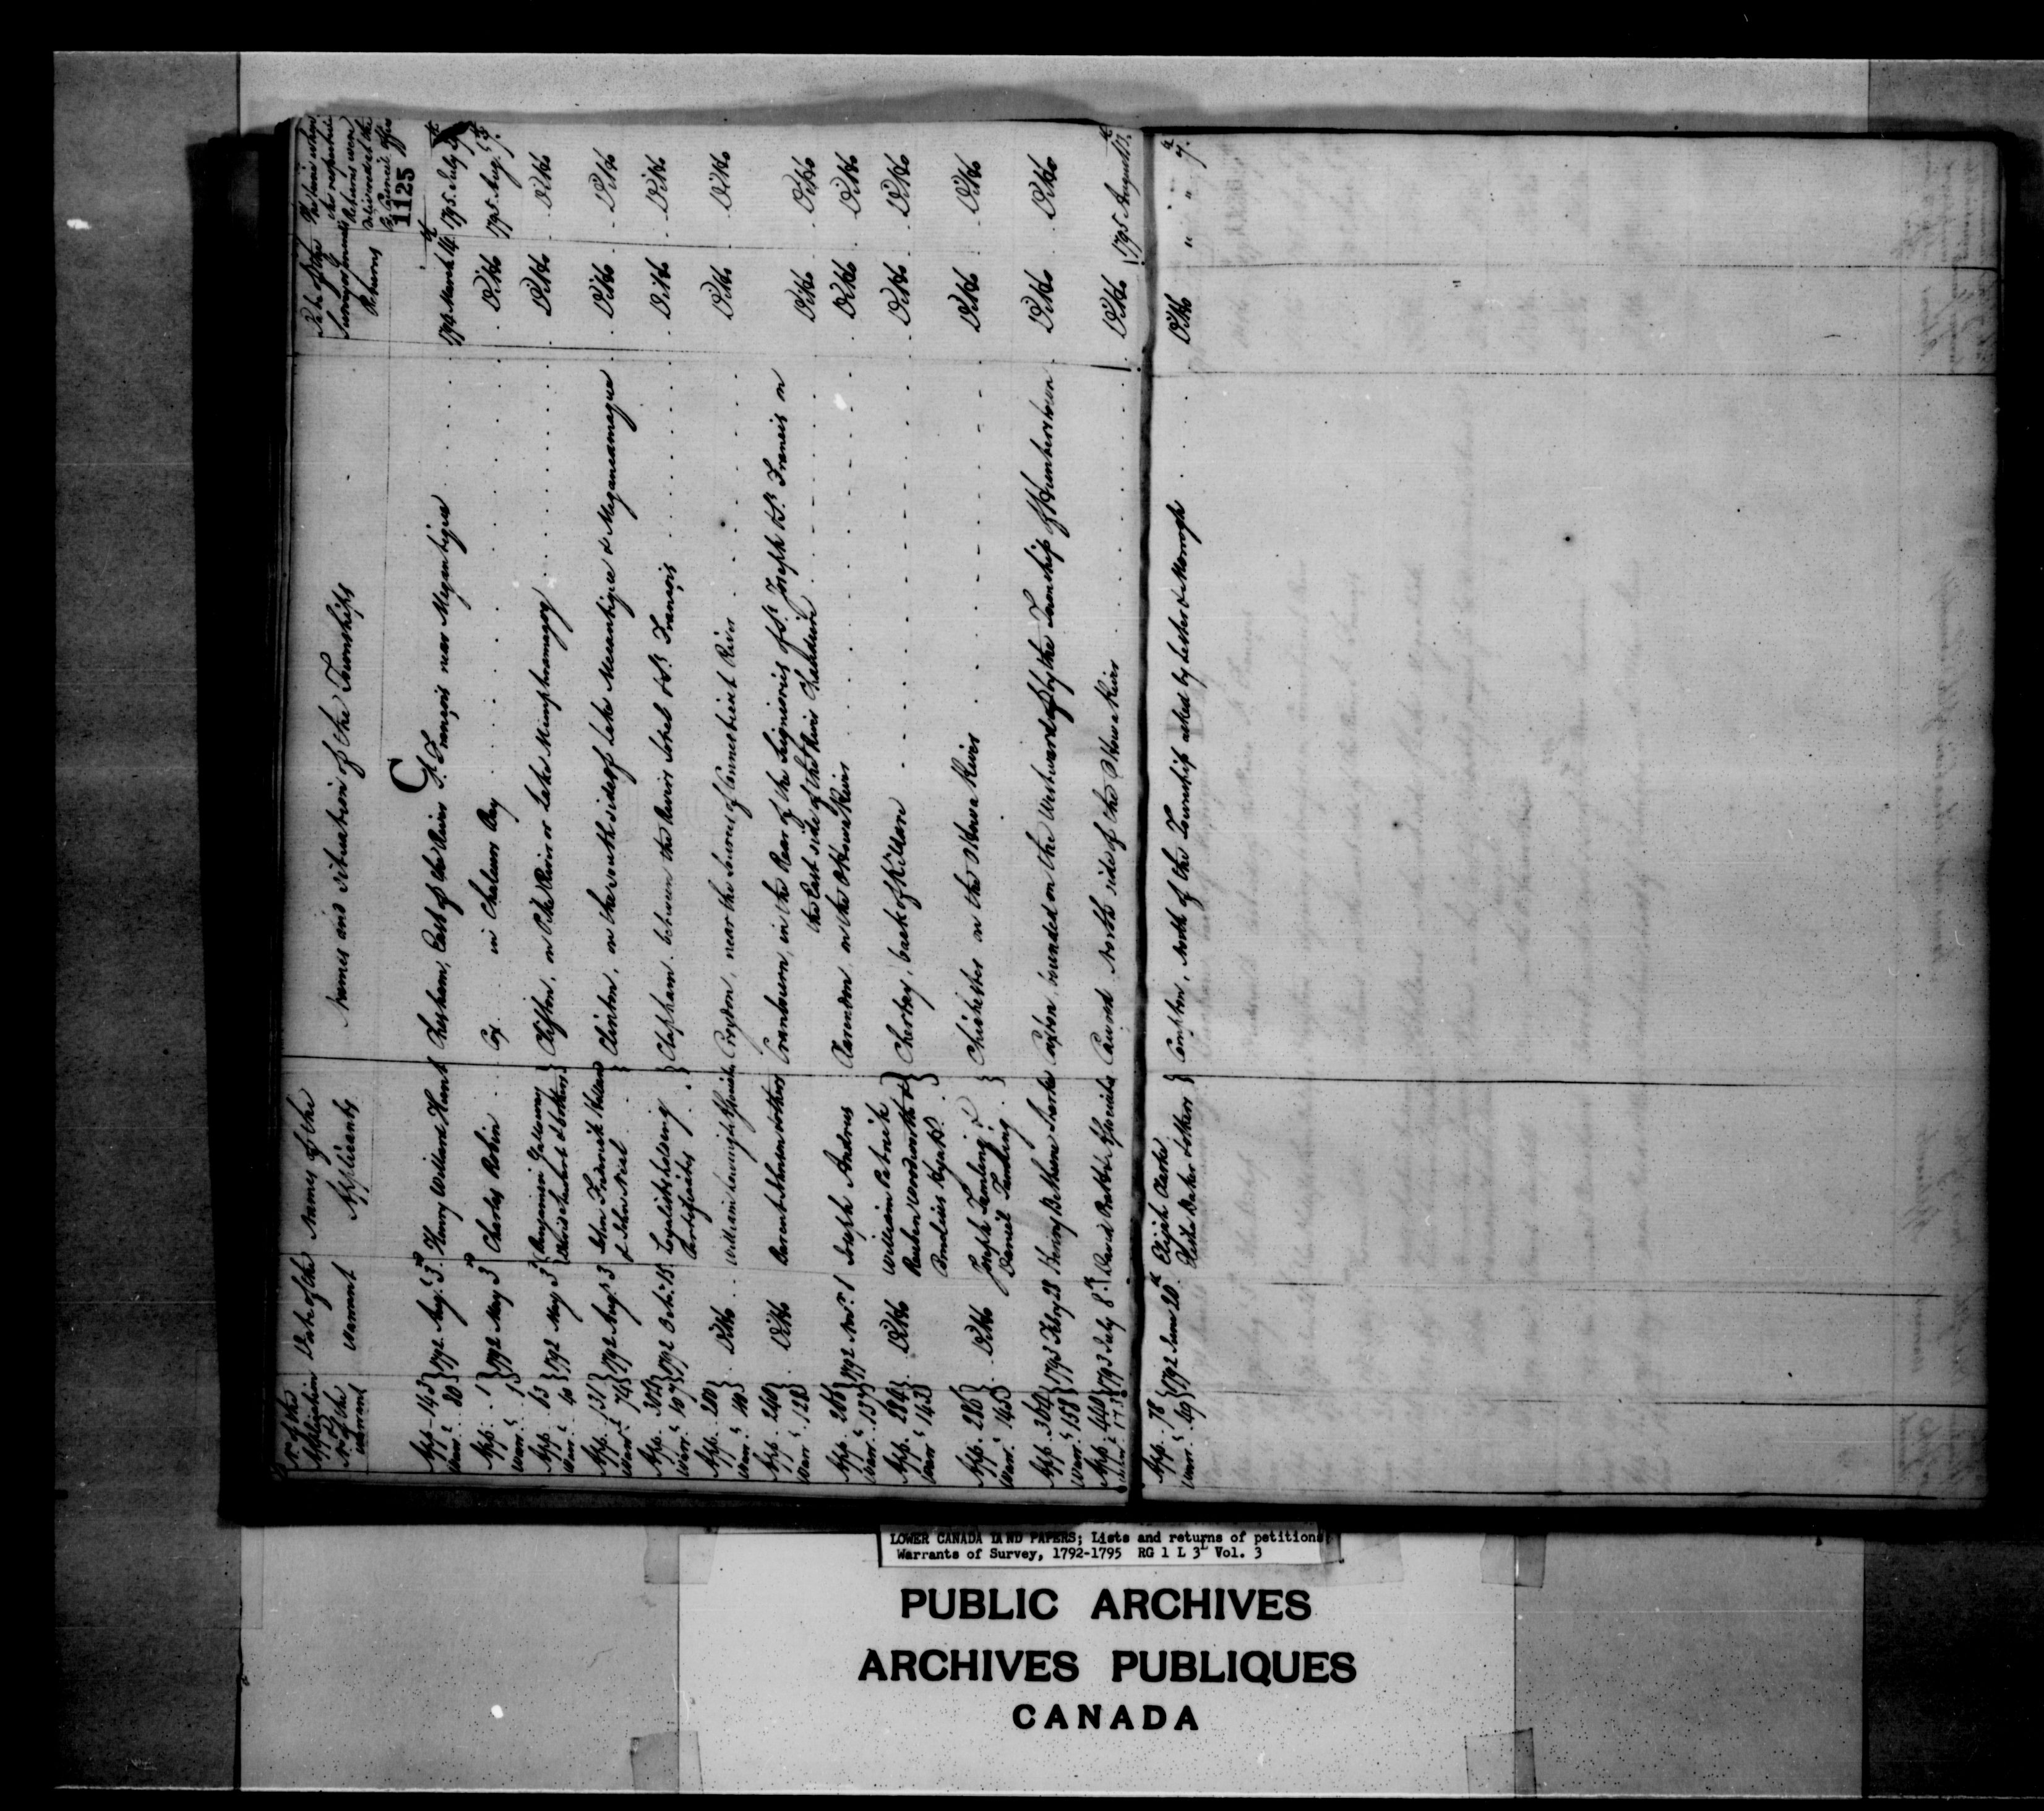 No. of the Application & No. of the Warrant
Date of the Warrant
Names of the Applicants
Names and situation of the Townships
Date of the Surveyor general's Returns
The time when the respective Returns were delivered at the Council office
1125
C
App. 143 Warr.t 80 } 1792 Aug.t 3.d Henry Willard Hunt Chesham, East of the River S.t François near Megantigue 1794 March 14.th 1795 July
App. 1 Warr.t 1 } 1792 May 3.d Charles Robin Cox in Chaleurs Bay Ditto 1795 Aug.t 7.th
App. 63 Warr.t 40 } 1792 May 3.d { Benjamin Gallaway
& others } Clifton, on Pike River or Lake Memphramagog Ditto Ditto
App. 131 Warr.t 74 } 1792 Aug.t 3 John Frederick Holland
& John Nial } Clinton, on the South side of Lake Macantigue & Megancamague Ditto Ditto
App. 302 Warr.t 107 } 1792 Oct.r 15 Loyalists holding
Certificates } Clapham between the Rivers Sorel & S.t François Ditto Ditto
App. 280 Warr.t Ditto William & Associates Croydon, near the Sources of Connecticut River Ditto Ditto
App. 240 Warr.t 128 } Ditto & others Cranbourn, in the Rear of the Seigniories of S.t Joseph & S.t Francis on
the East side of the River Chaudiere Ditto Ditto
App. 266 Warr.t 137 } 1792 Nov.r 1 Joseph Andrus Clarendon, on the Ottowa River Ditto Ditto
App. 284 Warr.t 143 } Ditto William Patrick
Reuben Wordsworth &
Cornelius } Chertsey, back of Kildare Ditto Ditto
App. 286 Warr.t 145 } Ditto Joseph Tumbling &
Daniel Tumbling } Chichester on the Ottowa River Ditto Ditto
App. 364 Warr.t 158 } 1793 Feb.ry 28 Henry Bethum Caxton, bounded on the Westward by the Township of Hunterstown Ditto Ditto
App. 440 Warr.t 173 } 1793 July 8.th David & Associates Cawood North side of the Ottowa River Ditto 1795 August 17.th
App. 78 Warr.t 49 } 1792 June 20.th Elijah Clarke
Baker & others } Compton, North of the Township asked by Lester & Morrogh Ditto " " 7.th
LOWER CANADA LAND PAPERS; Lists and returns of petitions,
Warrants of Survey, 1792-1795 RG 1 L 3L Vol. 3
PUBLIC ARCHIVES
ARCHIVES PUBLIQUES
CANADA